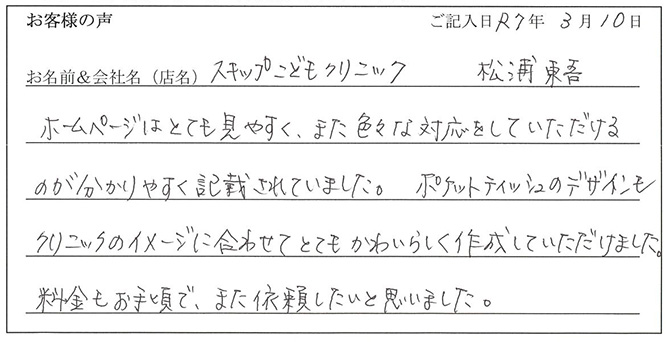 お客様の声 ご記入日 R7年 3月10日
お名前＆会社名（店名） スキップこどもクリニック 松浦 東吾
ホームページはとても見やすく、また色々な対応をしていただける
のが分かりやすく記載されていました。 ポケットティッシュのデザインも
クリニックのイメージに合わせてとてもかわいらしく作成していただけました。
料金もお手頃で、また依頼したいと思いました。